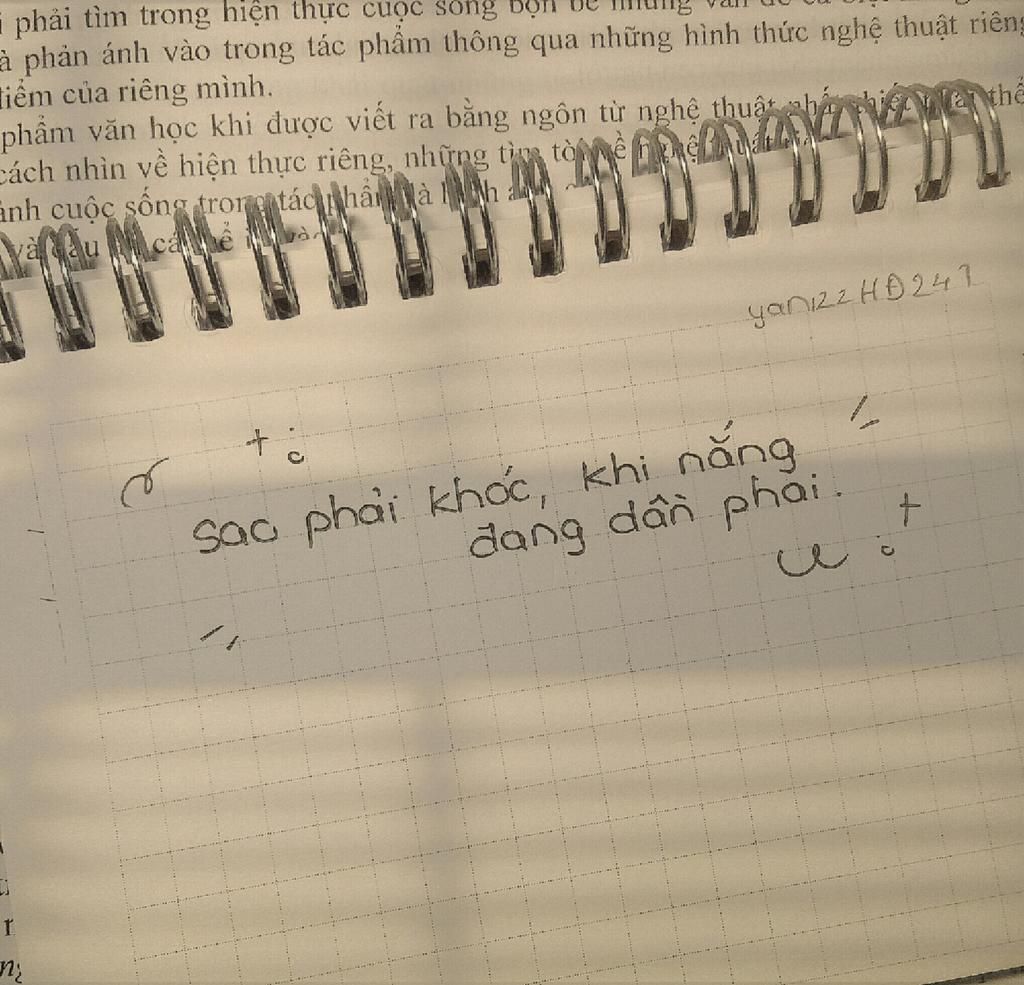 phải tìm trong hiện thực cuộc sống bộn bề những vấn đề
phản ánh vào trong tác phẩm thông qua những hình thức nghệ thuật riêng
điểm của riêng mình.
phẩm văn học khi được viết ra bằng ngôn từ nghệ thuật thể
cách nhìn về hiện thực riêng, những tìm tòi về nghệ thuật
ảnh cuộc sống trong tác phẩm là
và dấu
yan122HĐ247
sao phải khóc, khi nắng
đang dần phai.